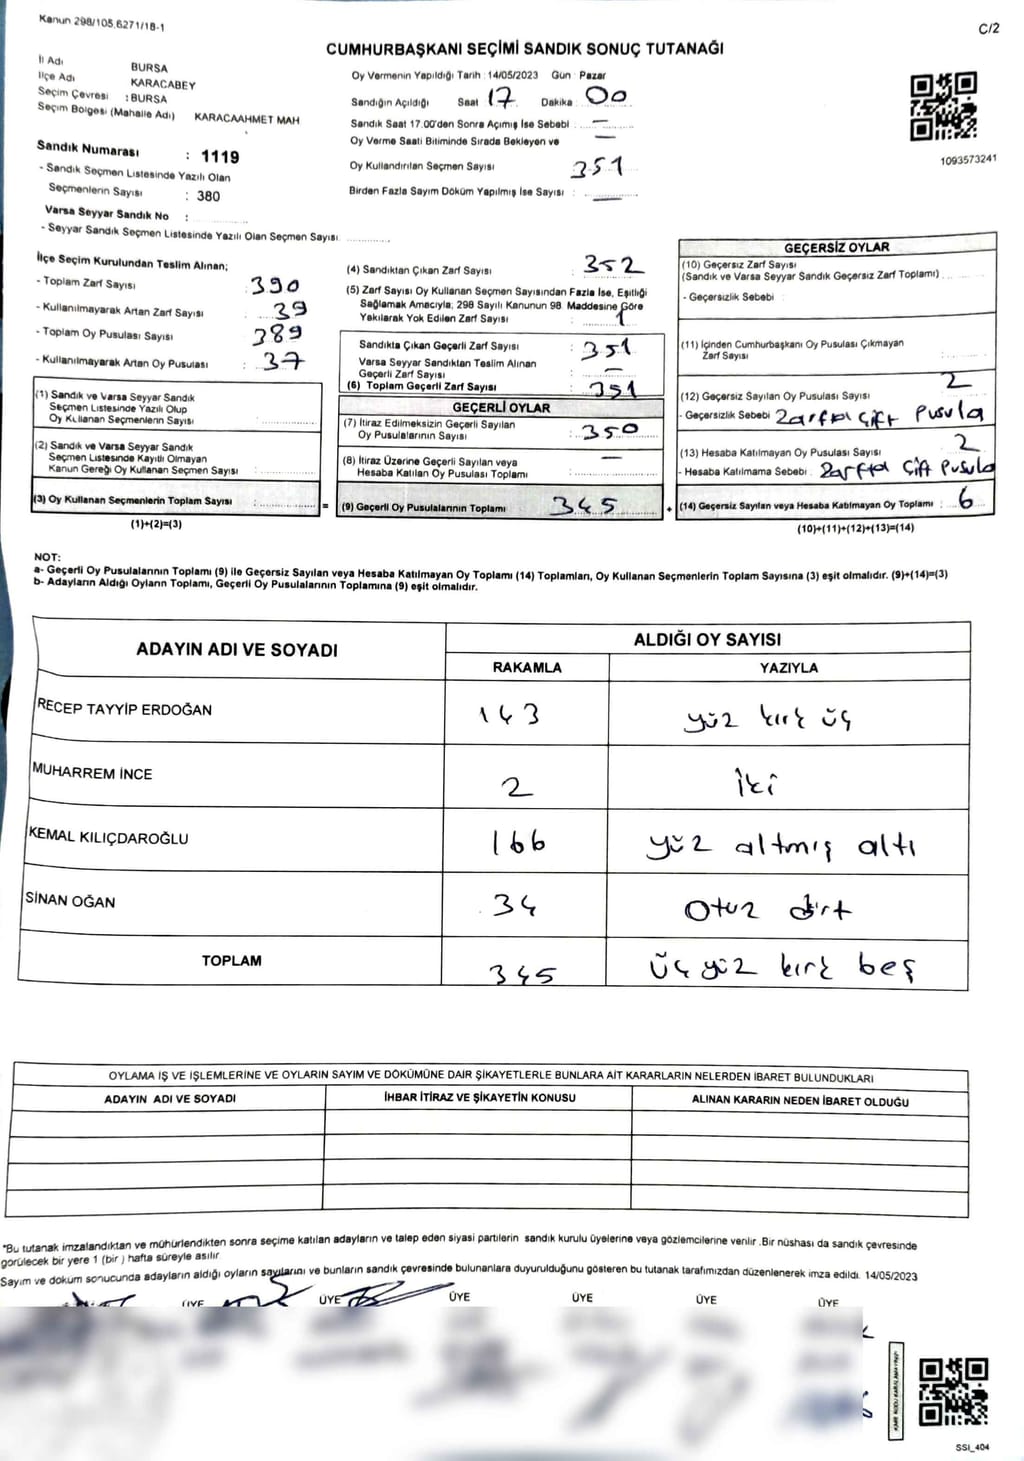 Kanun 298/105,6271/18-1
C/2
CUMHURBAŞKANI SEÇİMİ SANDIK SONUÇ TUTANAĞI
İl Adı BURSA
İlçe Adı KARACABEY
Seçim Çevresi : BURSA
Seçim Bölgesi (Mahalle Adı) KARACAAHMET MAH
Sandık Numarası : 1119
- Sandık Seçmen Listesinde Yazılı Olan
Seçmenlerin Sayısı : 380
Varsa Seyyar Sandık No :
- Seyyar Sandık Seçmen Listesinde Yazılı Olan Seçmen Sayısı
Oy Vermenin Yapıldığı Tarih : 14/05/2023 Gün : Pazar
Sandığın Açıldığı Saat 17 Dakika 00
Sandık Saat 17.00'den Sonra Açılmış İse Sebebi : —
Oy Verme Saati Bitiminde Sırada Bekleyen ve —
Oy Kullandırılan Seçmen Sayısı 351
Birden Fazla Sayım Döküm Yapılmış İse Sayısı : —
1093573241
İlçe Seçim Kurulundan Teslim Alınan;
- Toplam Zarf Sayısı : 390
- Kullanılmayarak Artan Zarf Sayısı : 39
- Toplam Oy Pusulası Sayısı : 389
- Kullanılmayarak Artan Oy Pusulası : 37
(1) Sandık ve Varsa Seyyar Sandık
Seçmen Listesinde Yazılı Olup
Oy Kullanan Seçmenlerin Sayısı :
(2) Sandık ve Varsa Seyyar Sandık
Seçmen Listesinde Kayıtlı Olmayan
Kanun Gereği Oy Kullanan Seçmen Sayısı :
(3) Oy Kullanan Seçmenlerin Toplam Sayısı : =
(1)+(2)=(3)
(4) Sandıktan Çıkan Zarf Sayısı : 352
(5) Zarf Sayısı Oy Kullanan Seçmen Sayısından Fazla İse, Eşitliği
Sağlamak Amacıyla, 298 Sayılı Kanunun 98. Maddesine Göre
Yakılarak Yok Edilen Zarf Sayısı : 1
Sandıkta Çıkan Geçerli Zarf Sayısı : 351
Varsa Seyyar Sandıktan Teslim Alınan
Geçerli Zarf Sayısı : —
(6) Toplam Geçerli Zarf Sayısı : 351
GEÇERLİ OYLAR
(7) İtiraz Edilmeksizin Geçerli Sayılan
Oy Pusulalarının Sayısı : 350
(8) İtiraz Üzerine Geçerli Sayılan veya
Hesaba Katılan Oy Pusulası Toplamı : —
(9) Geçerli Oy Pusulalarının Toplamı 345 +
GEÇERSİZ OYLAR
(10) Geçersiz Zarf Sayısı
(Sandık ve Varsa Seyyar Sandık Geçersiz Zarf Toplamı)
- Geçersizlik Sebebi :
(11) İçinden Cumhurbaşkanı Oy Pusulası Çıkmayan
Zarf Sayısı :
(12) Geçersiz Sayılan Oy Pusulası Sayısı : 2
- Geçersizlik Sebebi Zarftal Çift Pusula
(13) Hesaba Katılmayan Oy Pusulası Sayısı : 2
- Hesaba Katılmama Sebebi : Zarftal Çift Pusula
(14) Geçersiz Sayılan veya Hesaba Katılmayan Oy Toplamı : 6
(10)+(11)+(12)+(13)=(14)
NOT:
a- Geçerli Oy Pusulalarının Toplamı (9) ile Geçersiz Sayılan veya Hesaba Katılmayan Oy Toplamı (14) Toplamları, Oy Kullanan Seçmenlerin Toplam Sayısına (3) eşit olmalıdır. (9)+(14)=(3)
b- Adayların Aldığı Oyların Toplamı, Geçerli Oy Pusulalarının Toplamına (9) eşit olmalıdır.
ADAYIN ADI VE SOYADI ALDIĞI OY SAYISI
RAKAMLA YAZIYLA
RECEP TAYYİP ERDOĞAN 143 yüz kırk üç
MUHARREM İNCE 2 iki
KEMAL KILIÇDAROĞLU 166 yüz altmış altı
SİNAN OĞAN 34 otuz dört
TOPLAM 345 üç yüz kırk beş
OYLAMA İŞ VE İŞLEMLERİNE VE OYLARIN SAYIM VE DÖKÜMÜNE DAİR ŞİKAYETLERLE BUNLARA AİT KARARLARIN NELERDEN İBARET BULUNDUKLARI
ADAYIN ADI VE SOYADI İHBAR İTİRAZ VE ŞİKAYETİN KONUSU ALINAN KARARIN NEDEN İBARET OLDUĞU
"Bu tutanak imzalandıktan ve mühürlendikten sonra seçime katılan adayların ve talep eden siyasi partilerin sandık kurulu üyelerine veya gözlemcilerine verilir .Bir nüshası da sandık çevresinde
görülecek bir yere 1 (bir ) hafta süreyle asılır.
Sayım ve döküm sonucunda adayların aldığı oyların sayılarını ve bunların sandık çevresinde bulunanlara duyurulduğunu gösteren bu tutanak tarafımızdan düzenlenerek imza edildi. 14/05/2023
ÜYE ÜYE ÜYE ÜYE ÜYE ÜYE
SSI_404